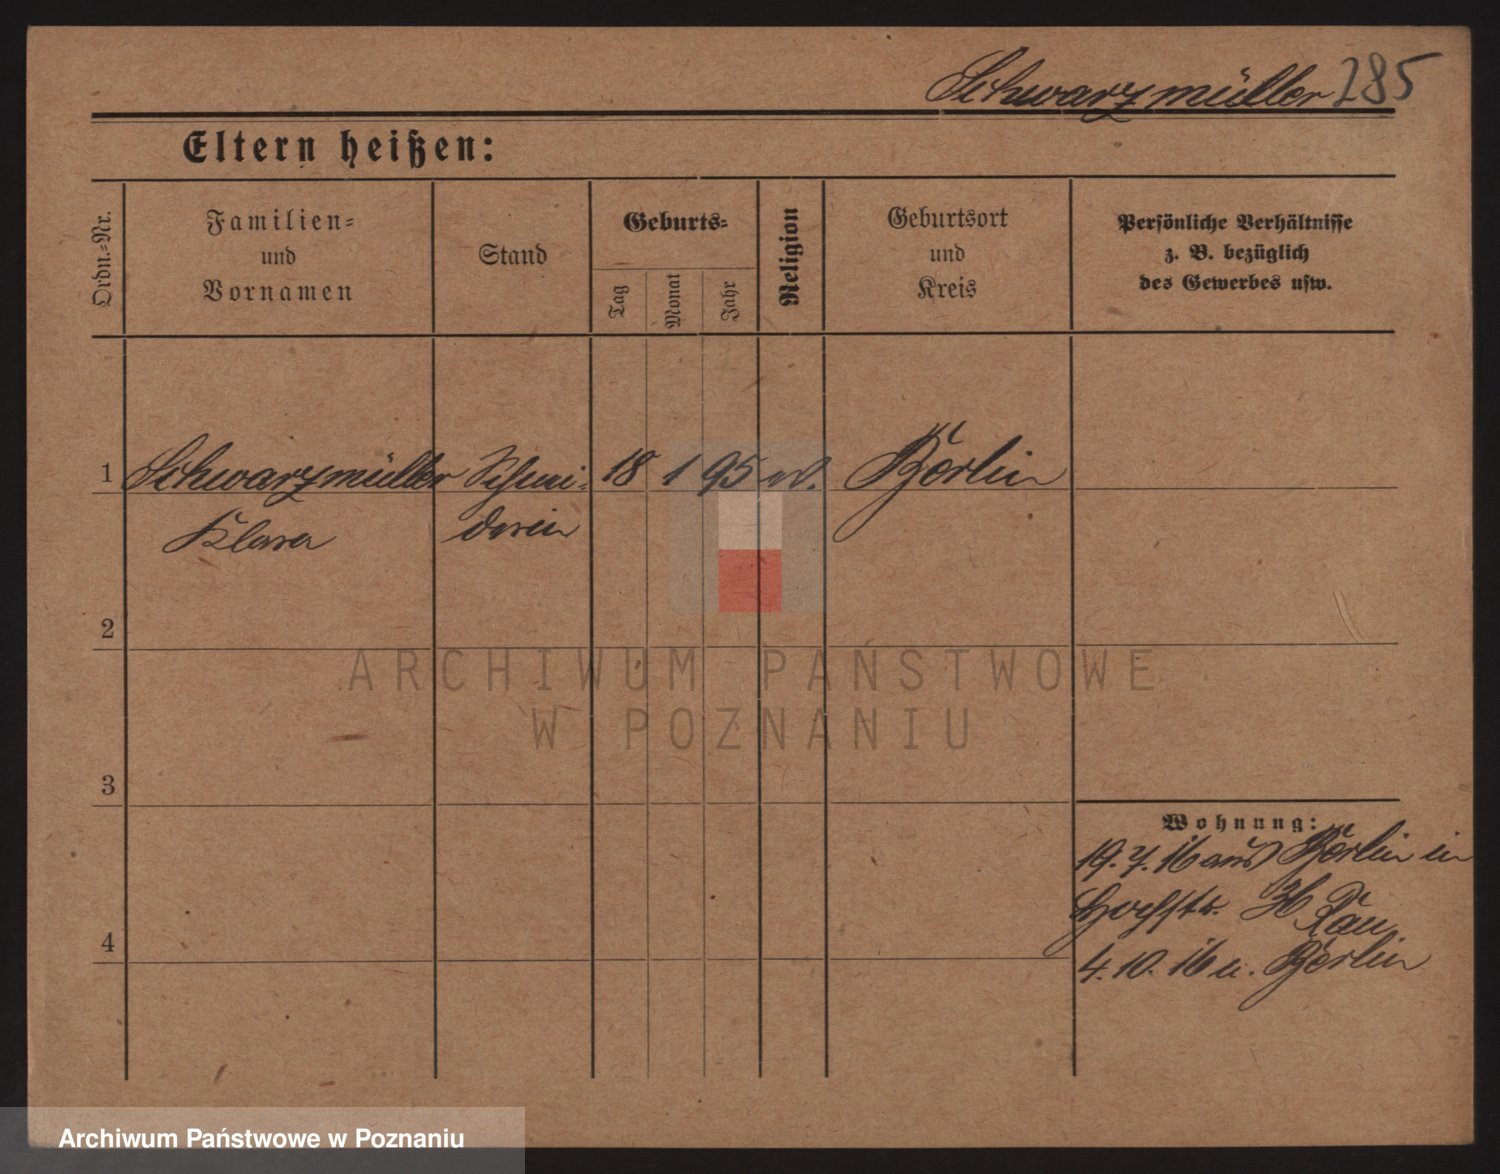 Schwarzmüller 285
Eltern heißen:
Ordn.-Nr.
Familien-
und
Vornamen
Stand
Geburts-
Tag
Monat
Jahr
Religion
Geburtsort
und
Kreis
Persönliche Verhältnisse
z. B. bezüglich
des Gewerbes usw.
1 Schwarzmüller Schnei- 18 1 95 Berlin
Klara derin
2
3
4
Wohnung:
19. 7. 16 aus Berlin in
Hochstr.
4. 10. 16 n. Berlin
ARCHIWUM PAŃSTWOWE
W POZNANIU
Archiwum Państwowe w Poznaniu